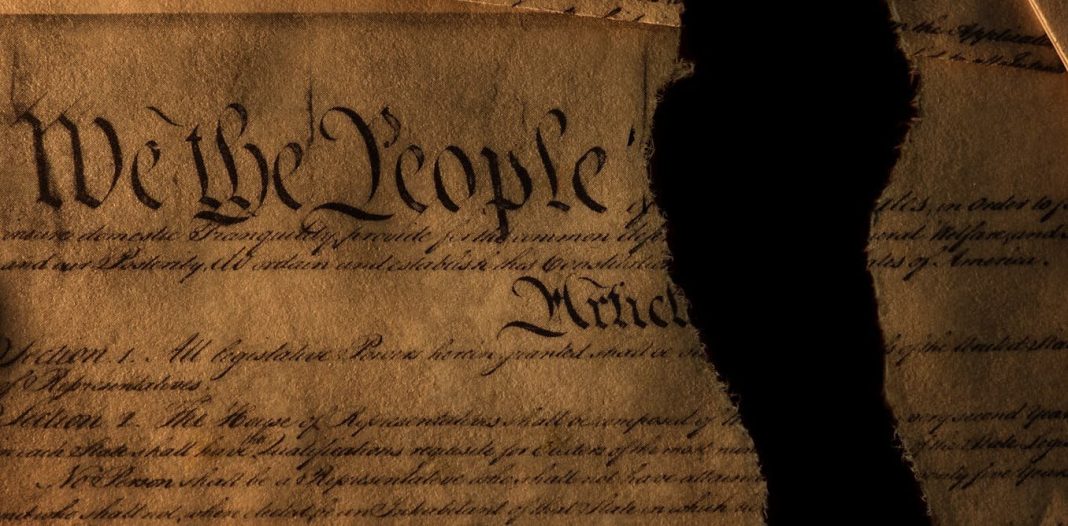 the Applicatio
We the People
in Order to
insure domestic Tranquility, provide for the common Welfare, and
and our Posterity, do ordain and establish this Constituti ates of America.
Articl
Section 1. All legislative Powers herein granted shall be of the United States
of Representatives.
Section 2. The House of Representatives shall be composed of very second Year
in each State shall have the Qualifications requisite for Electors of the most num of the State Legis
No Person shall be a Representative who shall not have attain ty five Years
and who shall not, when elected, be an Inhabitant of that State in which he